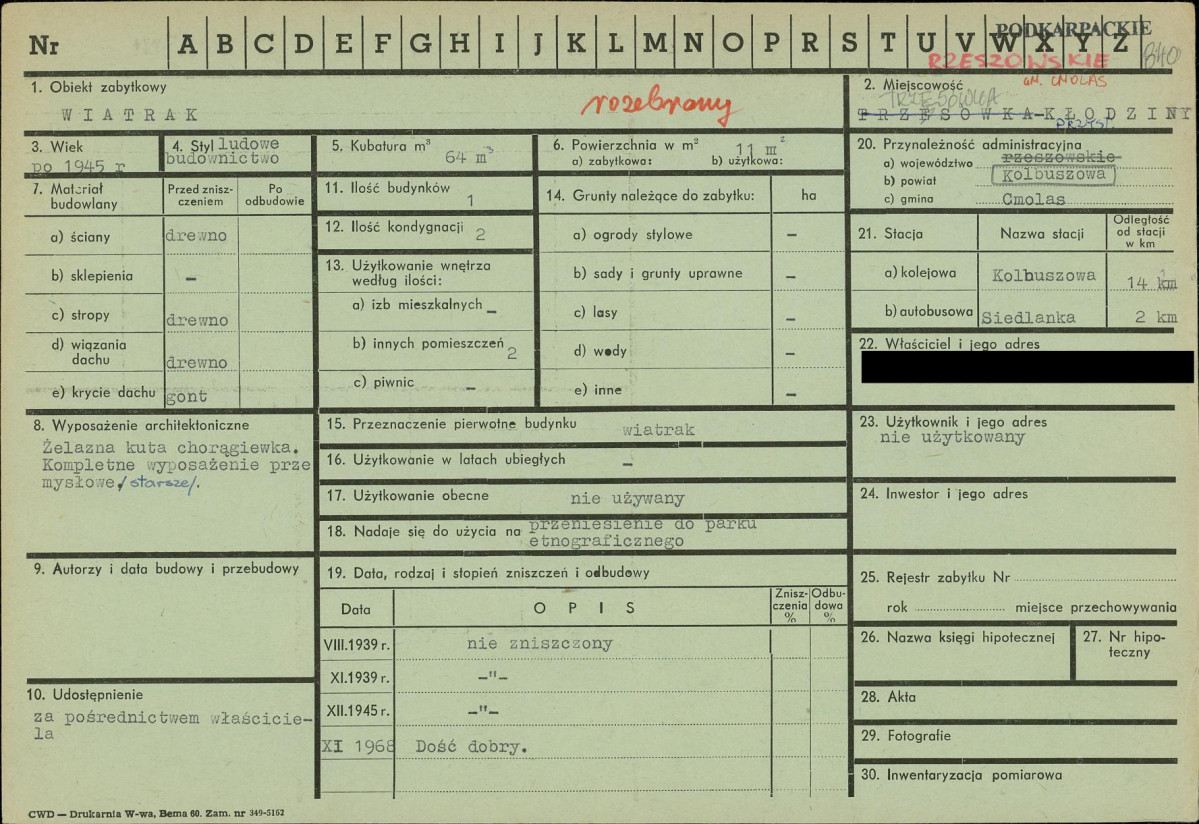 Nr A B C D E F G H I J K L M N O P R S T U V W X Y Z
PODKARPACKIE
RZESZOWSKIE
gm. CMOLAS
1. Obiekt zabytkowy
WIATRAK
rozebrany
2. Miejscowość
TRZĘSÓWKA
TRZESOWKA-KŁODZINY
PRZYS.
3. Wiek
po 1945 r
4. Styl ludowe
budownictwo
5. Kubatura m³
64 m³
6. Powierzchnia w m²
11 m²
a) zabytkowa: b) użytkowa:
20. Przynależność administracyjna
a) województwo rzeszowskie
b) powiat Kolbuszowa
c) gmina Cmolas
7. Materiał
budowlany
Przed znisz-
czeniem
Po
odbudowie
a) ściany drewno
b) sklepienia –
c) stropy drewno
d) wiązania
dachu drewno
e) krycie dachu gont
11. Ilość budynków
1
12. Ilość kondygnacji 2
13. Użytkowanie wnętrza
według ilości:
a) izb mieszkalnych –
b) innych pomieszczeń 2
c) piwnic –
14. Grunty należące do zabytku: ha
a) ogrody stylowe –
b) sady i grunty uprawne –
c) lasy –
d) wody –
e) inne –
21. Stacja Nazwa stacji
Odległość
od stacji
w km
a) kolejowa Kolbuszowa 14 km
b) autobusowa Siedlanka 2 km
22. Właściciel i jego adres
8. Wyposażenie architektoniczne
Żelazna kuta chorągiewka.
Kompletne wyposażenie prze
mysłowe /starsze/.
15. Przeznaczenie pierwotne budynku wiatrak
16. Użytkowanie w latach ubiegłych –
17. Użytkowanie obecne nie używany
18. Nadaje się do użycia na przeniesienie do parku
etnograficznego
23. Użytkownik i jego adres
nie użytkowany
24. Inwestor i jego adres
9. Autorzy i data budowy i przebudowy
19. Data, rodzaj i stopień zniszczeń i odbudowy
Data OPIS
Znisz-
czenia
%
Odbu-
dowa
%
VIII.1939 r. nie zniszczony
XI.1939 r. –"–
XII.1945 r. –"–
XI 1968 Dość dobry.
25. Rejestr zabytku Nr
rok miejsce przechowywania
26. Nazwa księgi hipotecznej
27. Nr hipo-
teczny
10. Udostępnienie
za pośrednictwem właścicie-
la
28. Akta
29. Fotografie
30. Inwentaryzacja pomiarowa
CWD — Drukarnia W-wa, Bema 60. Zam. nr 349-5162